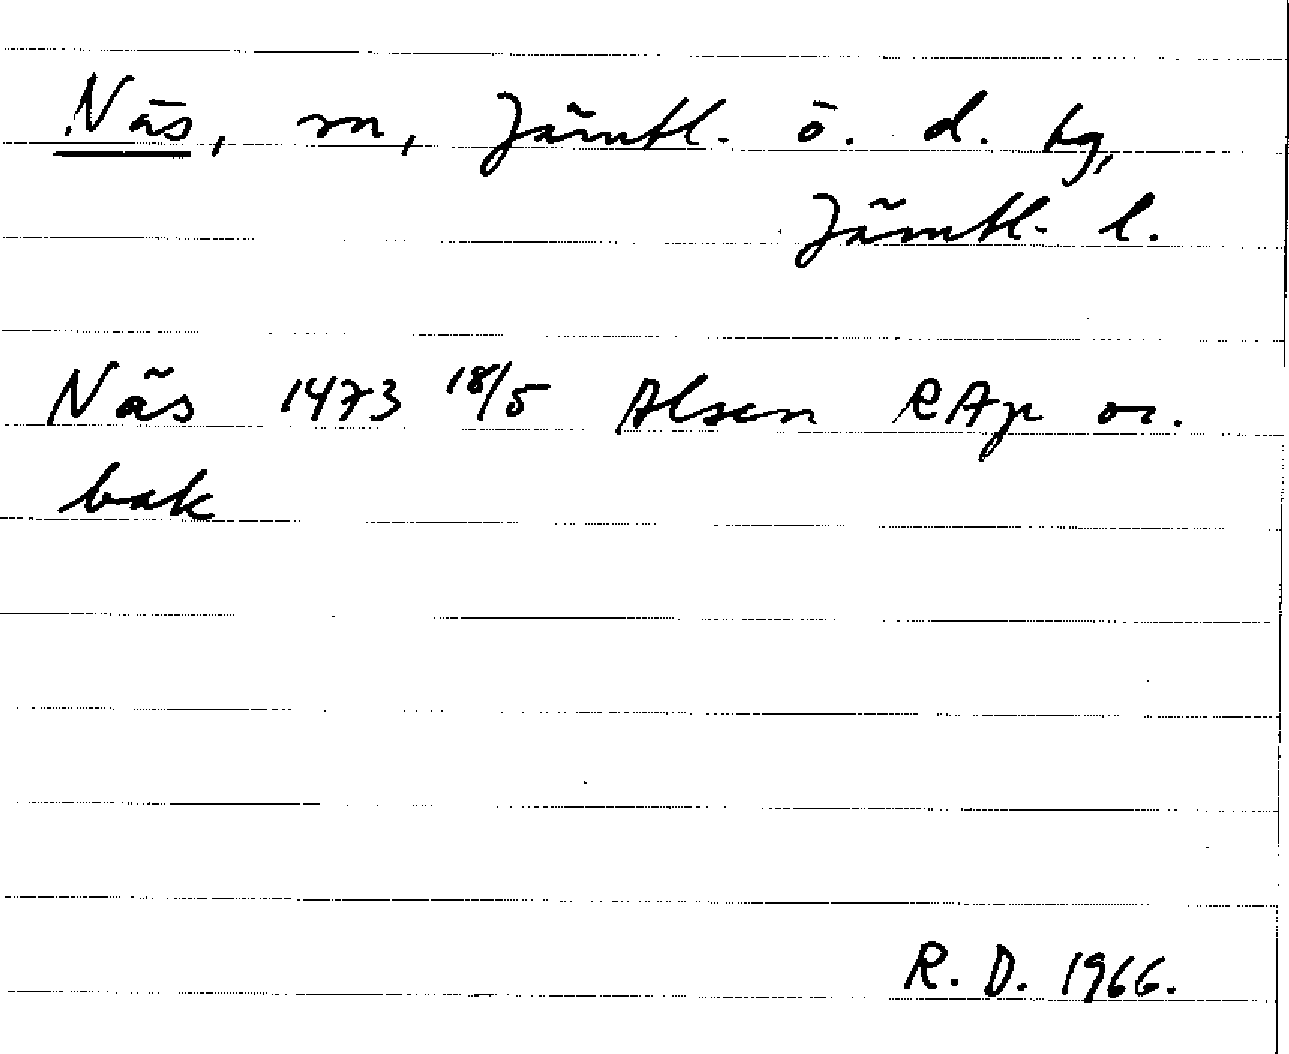 Näs, sn, Jämtl. ö. d. tg,
Jämtl. l.
Näs 1473 18/5 Alsen RAp or.
bak
R. D. 1966.